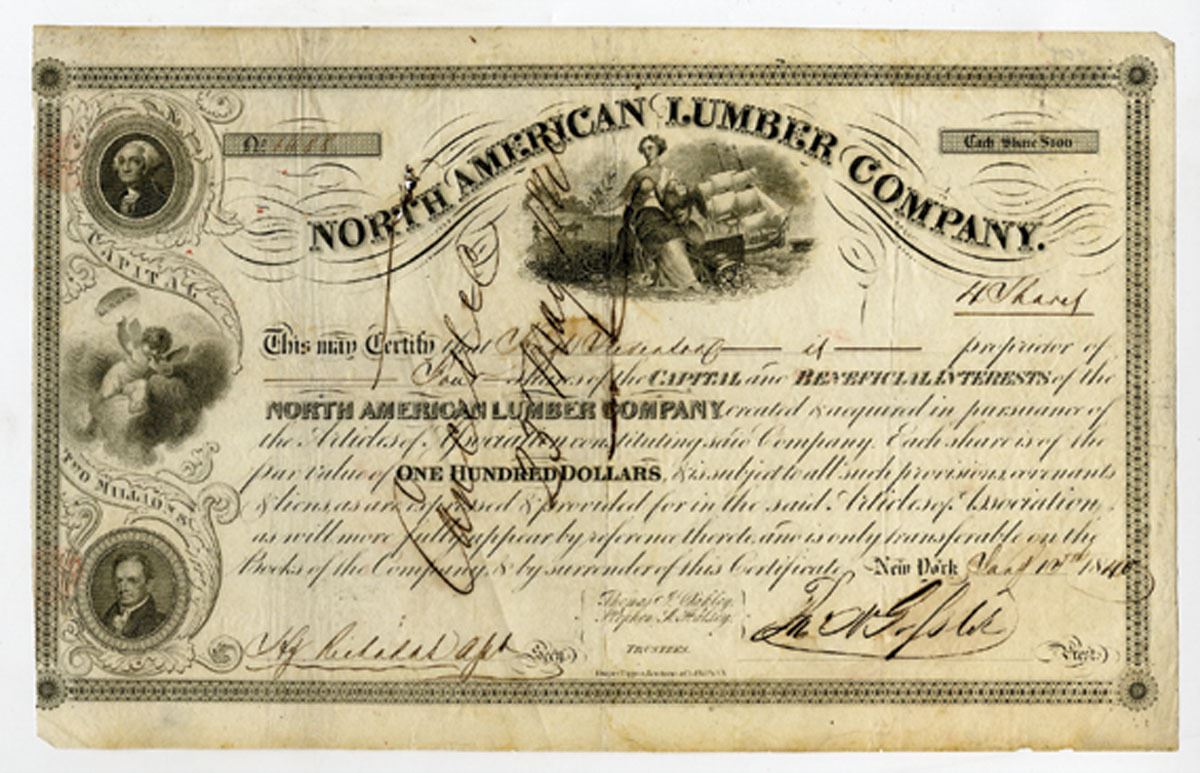 No.
Each Share $100
NORTH AMERICAN LUMBER COMPANY.
CAPITAL
TWO MILLIONS
4 Shares
This may Certify that is proprietor of
Four shares of the CAPITAL and BENEFICIAL INTERESTS of the
NORTH AMERICAN LUMBER COMPANY created & acquired in pursuance of
the Articles of Association constituting said Company. Each share is of the
par value of ONE HUNDRED DOLLARS, & is subject to all such provisions, covenants
& liens, as are expressed & provided for in the said Articles of Association,
as will more fully appear by reference thereto, and is only transferable on the
Books of the Company, & by surrender of this Certificate. New York 18
Cancelled
Thomas
Stephen
TRUSTEES.
Secy.
Prest.